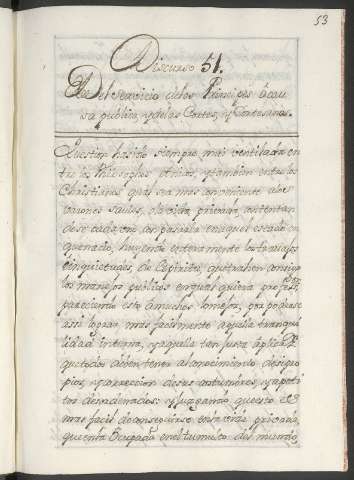 53
Discurso 51.
Del servicio de los Principes ô cau
sa publica, y de las Cortes, y Cortesanos.
Question ha sido siempre mui ventilada en
tre los Philosophos ethnicos, y tambien entre los
Christianos qual sea mas conveniente a los
varones savios, la vida privada, contentan
dose cada uno con pasarla en aquel estado en
que nacio, huyendo enteramente los travajos
è inquietudes, de Espiritu, que trahen consigo
los manejos publicos en qualquiera
pareciendo esto â muchos lo mejor, por poderse
assi lograr mas facilmente aquella tranqui
lidad interna, y aquella tan justa aplicaz.
que todos deben tener al conocimiento de si pro
pios, y correccion de sus costumbres, y apeti
tos desordenados: y juzgando, que esto es
mas facil de conseguirse en la vida privada,
que en la Ocupada en el tumulto del mundo,